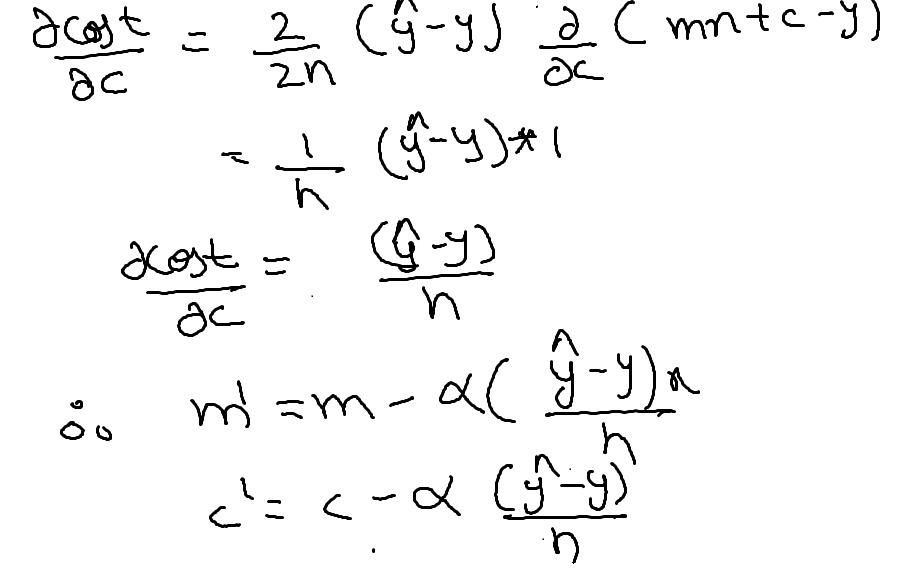 ∂cost/∂c = 2/2n (ŷ-y) ∂/∂c (mx+c-y)
= 1/n (ŷ-y)*1
∂cost/∂c = (ŷ-y)/n
∴ m' = m - α(ŷ-y)x/n
c' = c - α (ŷ-y)/n